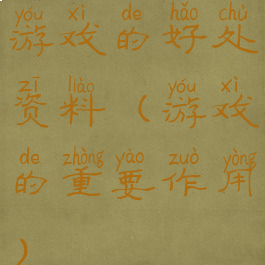 yóu xì de hǎo chù
游戏的好处
zī liào yóu xì
资料（游戏
de zhòng yào zuò yòng
的重要作用
）